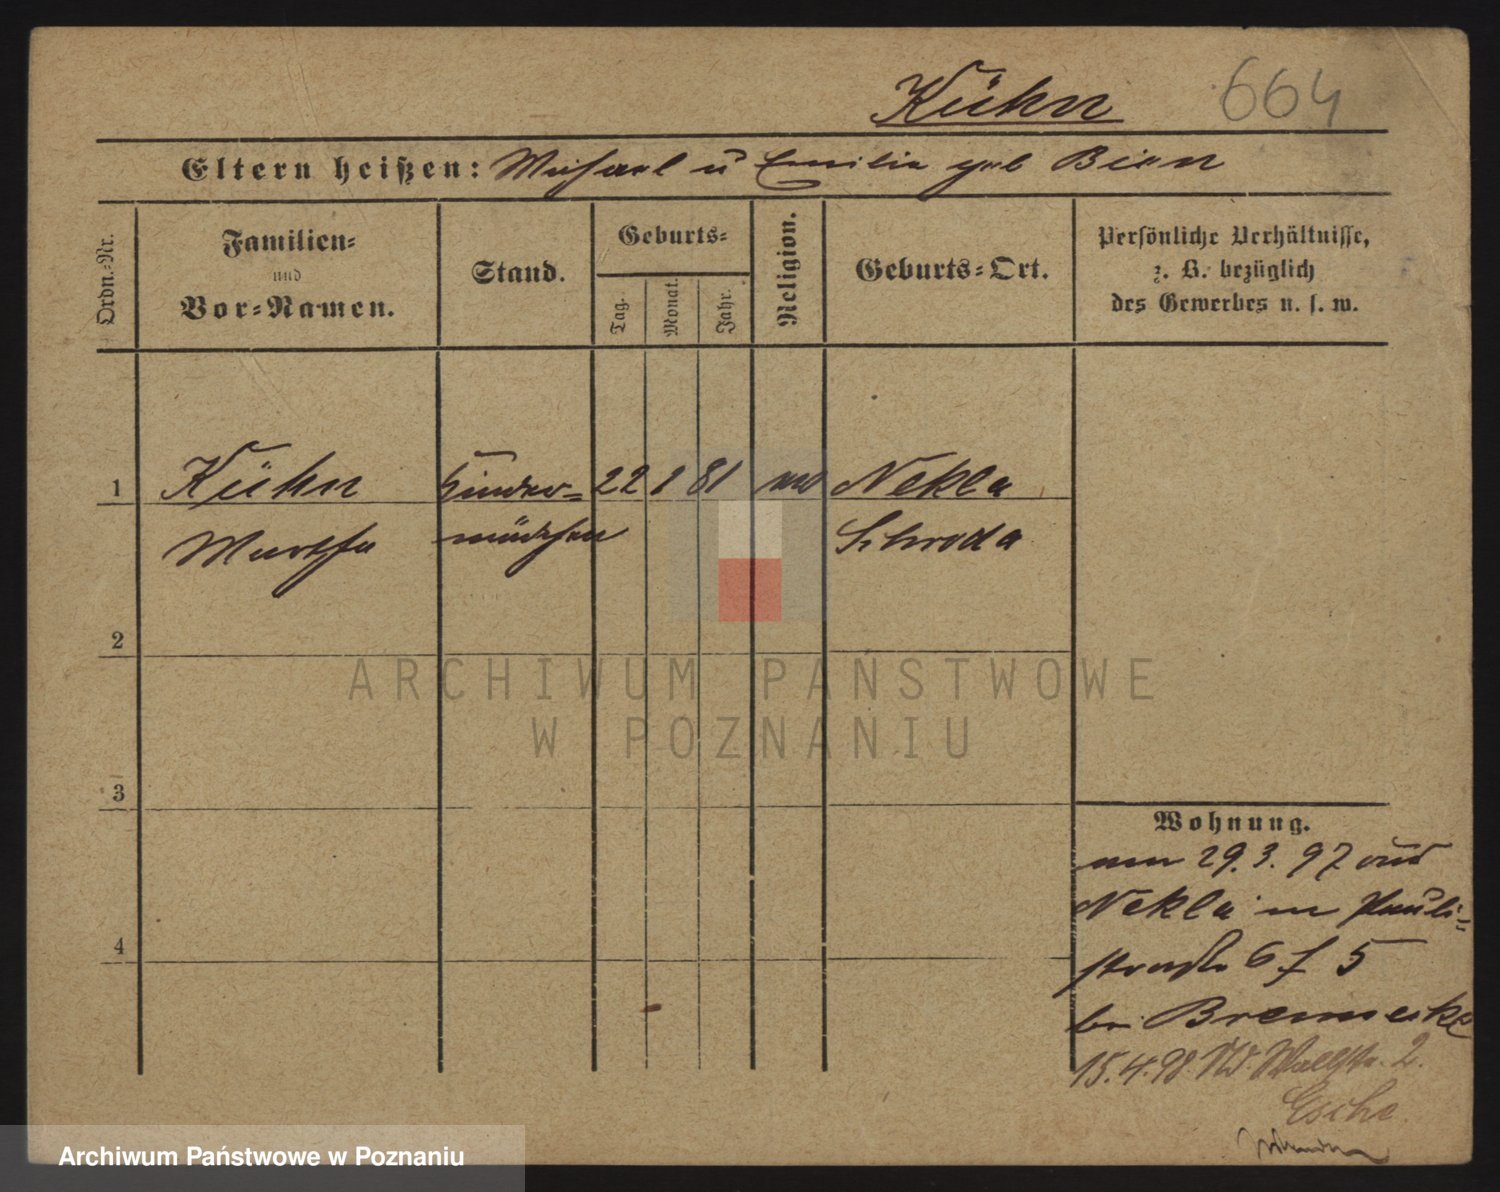 Kühn 664
Eltern heißen: Michael u Emilie geb Bien
Ordn.=Nr.
Familien=
und
Vor=Namen.
Stand.
Geburts=
Tag.
Monat.
Jahr.
Religion.
Geburts=Ort.
Persönliche Verhältnisse,
z. B. bezüglich
des Gewerbes u. s. w.
1 Kühn Kinder= 22 1 81 Nekla
Martha mädchen Schroda
2
3
4
Wohnung.
am 29.3.97 aus
Nekla in Pauli=
straße 6 f 5
bei Bremecke
15.4.98 Wallstr. 2.
Esche
ARCHIWUM PAŃSTWOWE
W POZNANIU
Archiwum Państwowe w Poznaniu